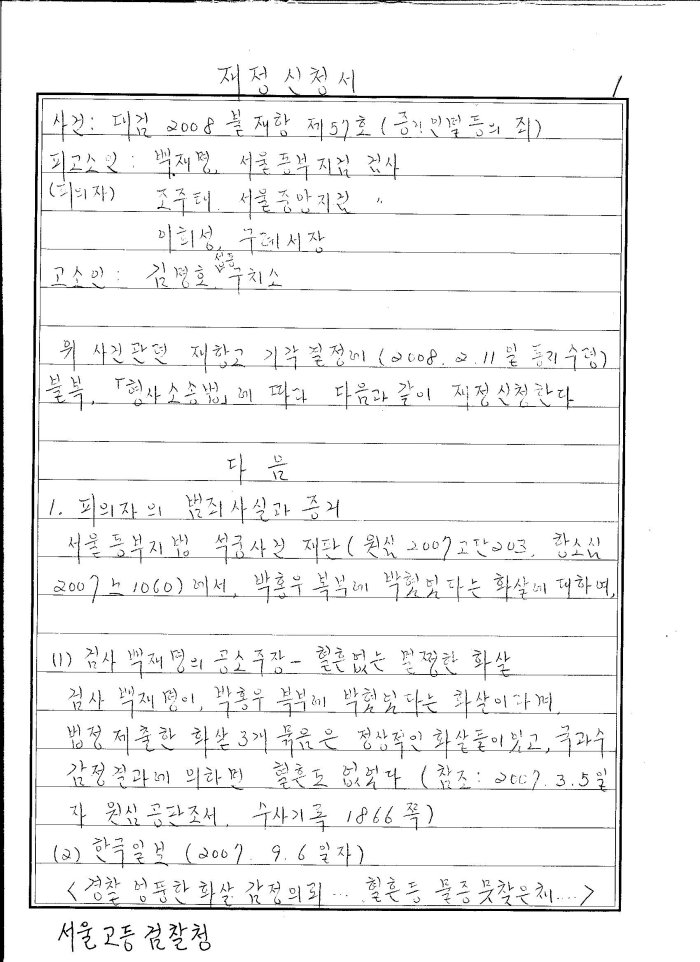 재정신청서
1
사건: 대검 2008 불재항 제57호 (증거인멸등의 죄)
피고소인 : 백재명, 서울동부지검 검사
(피의자) 조주태, 서울중앙지검 〃
이희성, 구폐서장
고소인 : 김명호, 성동구치소
위 사건관련 재항고 기각결정에 (2008. 2. 11일 통지수령)
불복, 「형사소송법」에 따라 다음과 같이 재정신청한다
다 음
1. 피의자의 범죄사실과 증거
서울동부지법 석궁사건 재판 (원심 2007고단203, 항소심
2007노1060)에서, 박홍우 복부에 박혔었다는 화살에 대하여,
(1) 검사 백재명의 공소주장 - 혈흔없는 멀쩡한 화살
검사 백재명이, 박홍우 복부에 박혔었다는 화살이라며,
법정 제출한 화살 3개 묶음은 정상적인 화살들이었고, 국과수
감정결과에 의하면 혈흔도 없었다 (참조 : 2007. 3. 5일
자 원심공판조서, 수사기록 1866쪽)
(2) 한국일보 (2007. 9. 6일자)
<경찰 엉뚱한 화살 감정의뢰 .... 혈흔등 물증못찾은채....>
서울고등검찰청